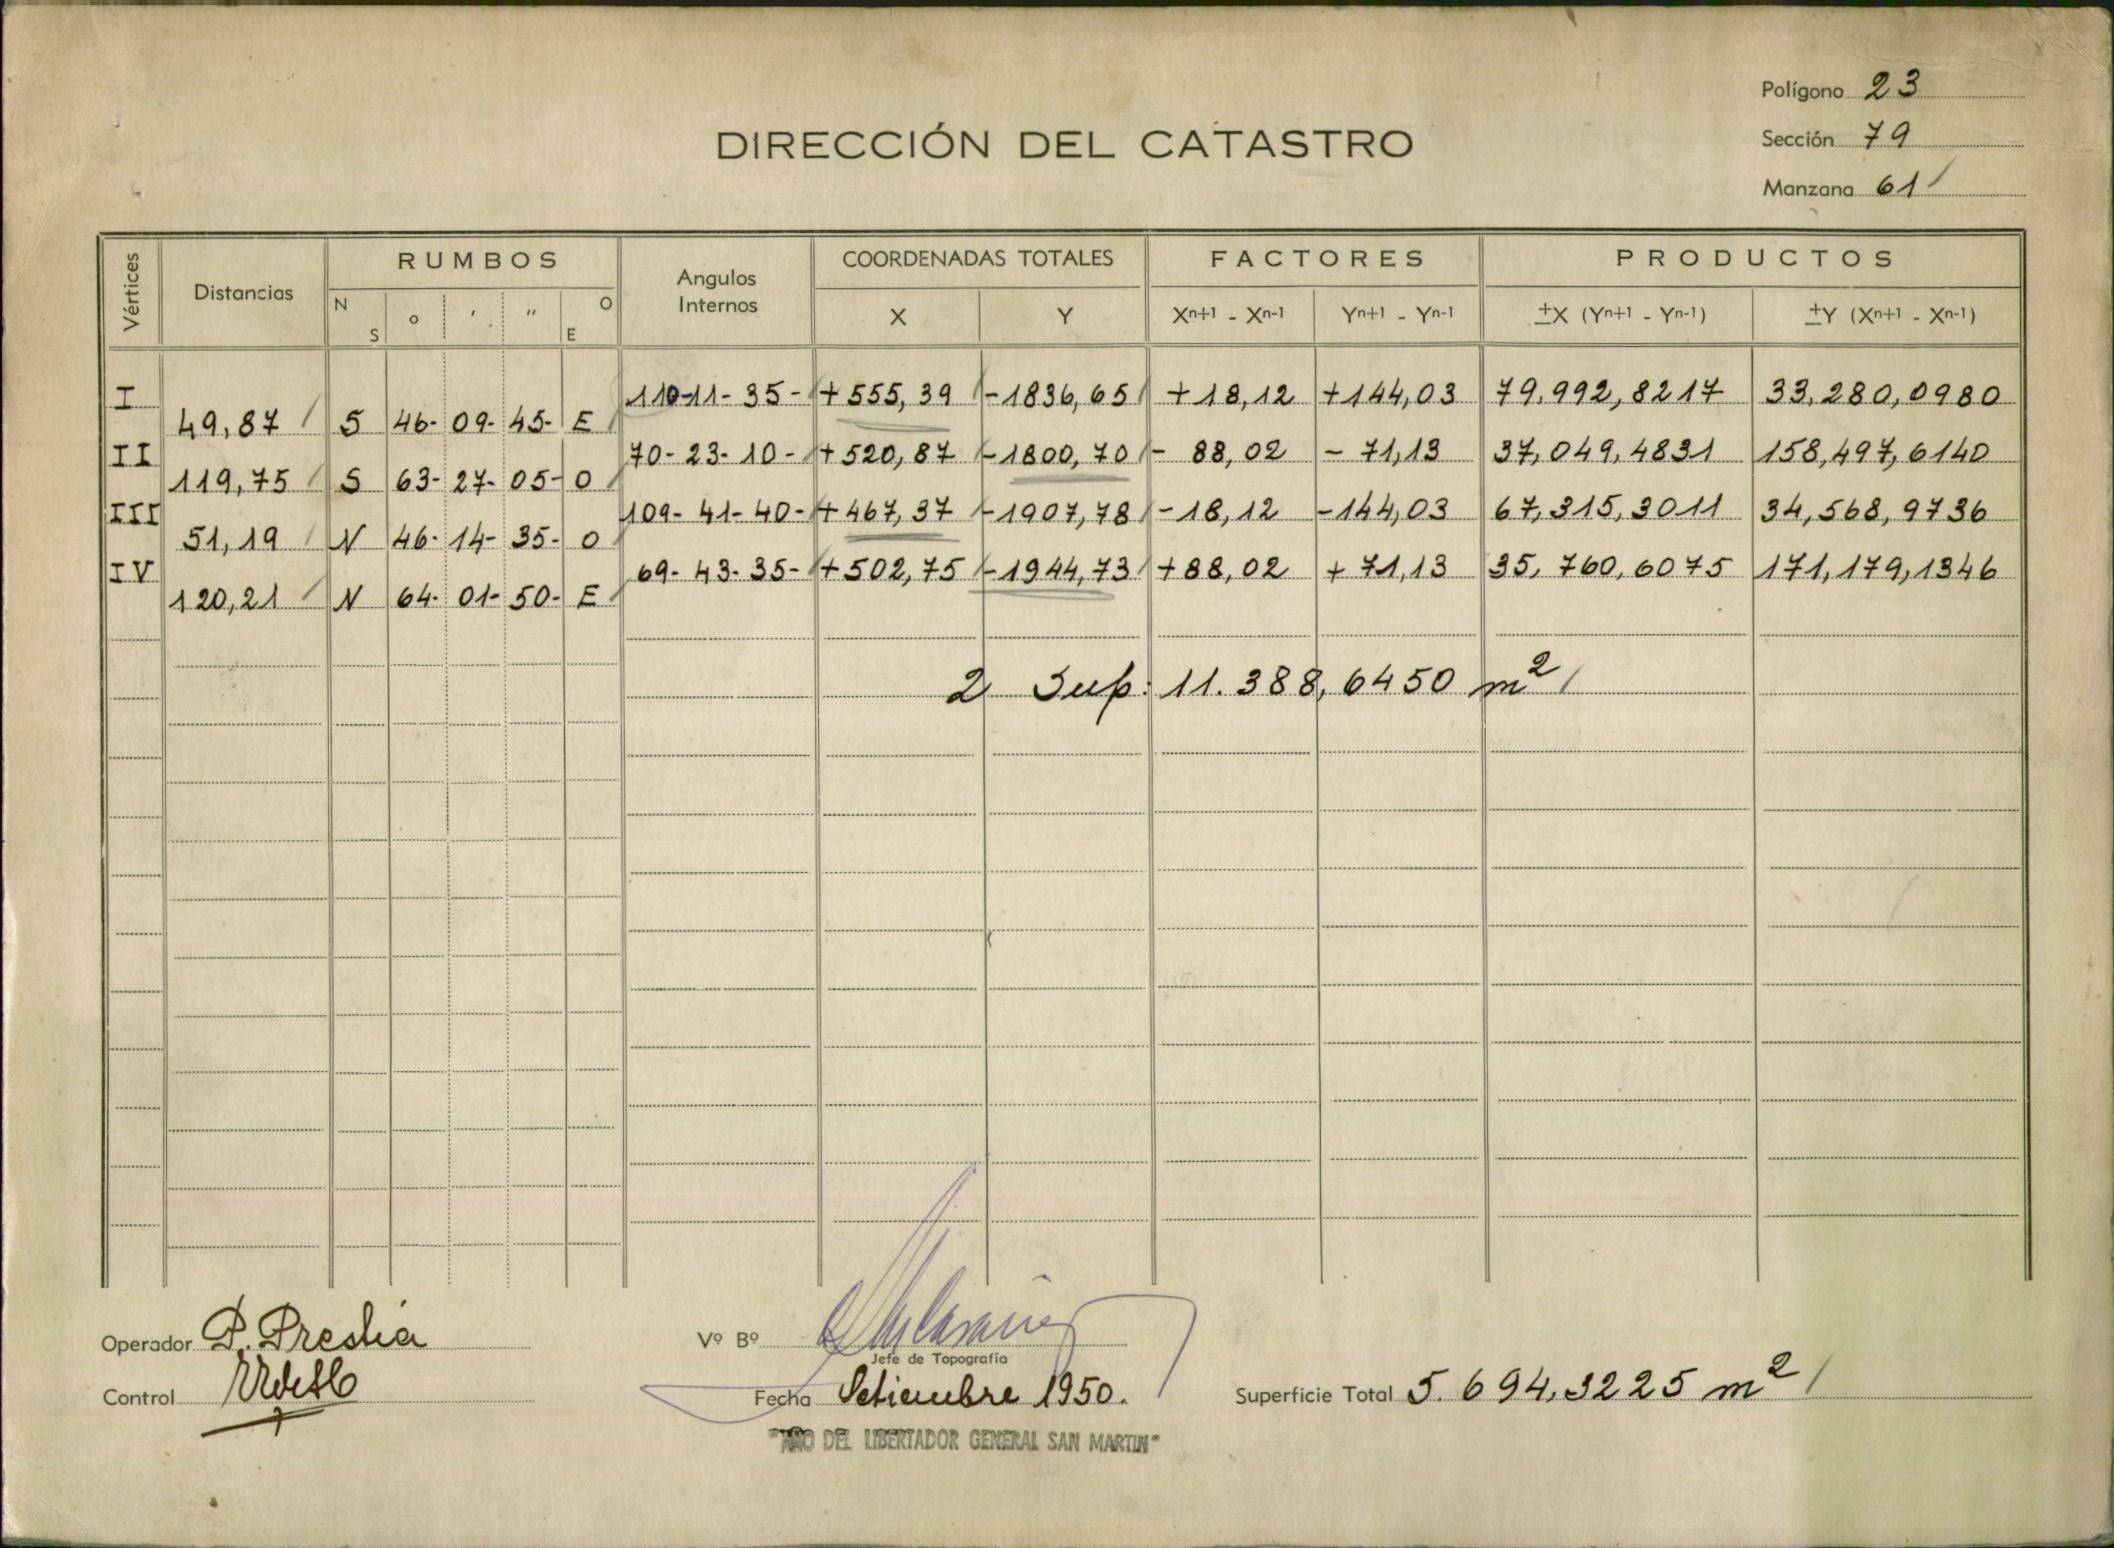 Polígono 23
DIRECCIÓN DEL CATASTRO
Sección 79
Manzana 61
Vértices Distancias RUMBOS Angulos Internos COORDENADAS TOTALES FACTORES PRODUCTOS
N S ° ' " O E X Y Xn+1 - Xn-1 Yn+1 - Yn-1 ±X (Yn+1 - Yn-1) ±Y (Xn+1 - Xn-1)
I 110-11-35- +555,39 -1836,65 +18,12 +144,03 79.992,8217 33.280,0980
49,87 S 46- 09- 45- E
II 70-23-10- +520,87 -1800,70 - 88,02 - 71,13 37,049,4831 158,497,6140
119,75 S 63- 27- 05- O
III 109-41-40- +467,37 -1907,78 -18,12 -144,03 67,315,3011 34,568,9736
51,19 N 46- 14- 35- O
IV 69-43-35- +502,75 -1944,73 +88,02 + 71,13 35,760,6075 171,179,1346
120,21 N 64- 01- 50- E
2 Sup: 11.388,6450 m²
Operador P. Prestia
Vº Bº
Jefe de Topografía
Control
Fecha Setiembre 1950.
Superficie Total 5.694,3225 m²
"AÑO DEL LIBERTADOR GENERAL SAN MARTIN"